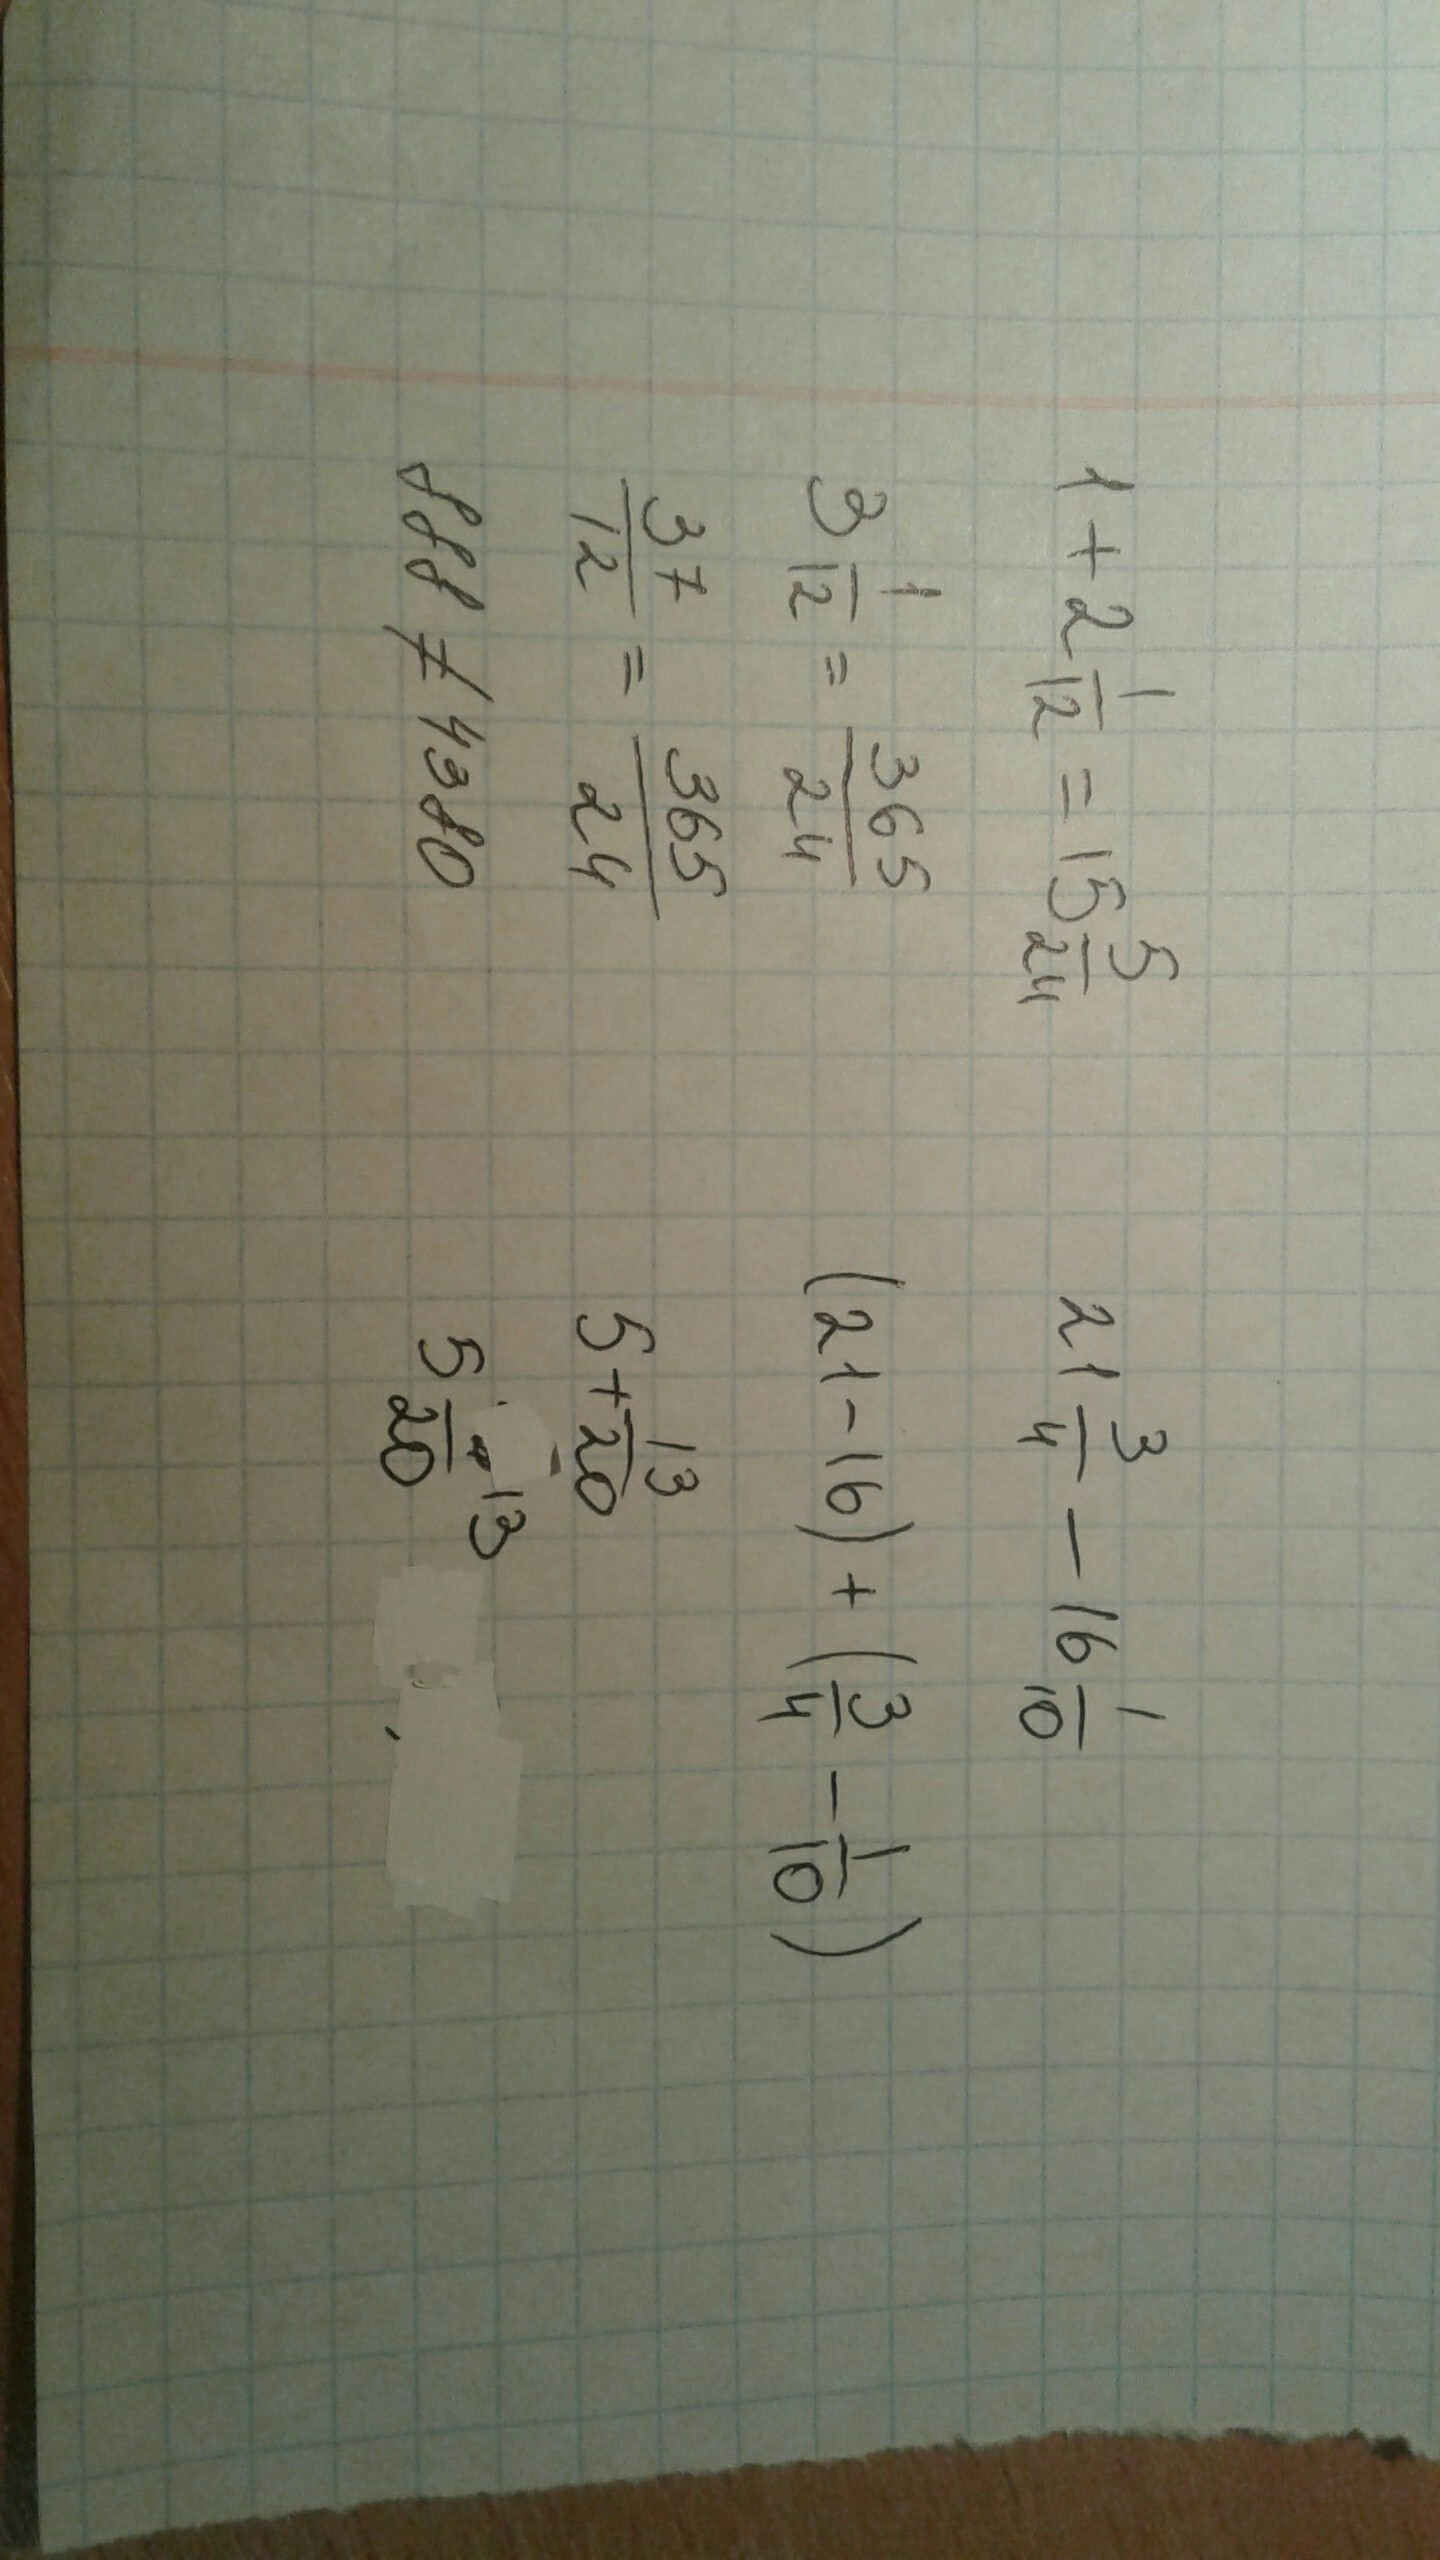 1 + 2 1/12 = 15 5/24
3 1/12 = 365/24
37/12 = 365/24
888 ≠ 4380
21 3/4 - 16 1/10
(21 - 16) + (3/4 - 1/10)
5 + 13/20
5 13/20